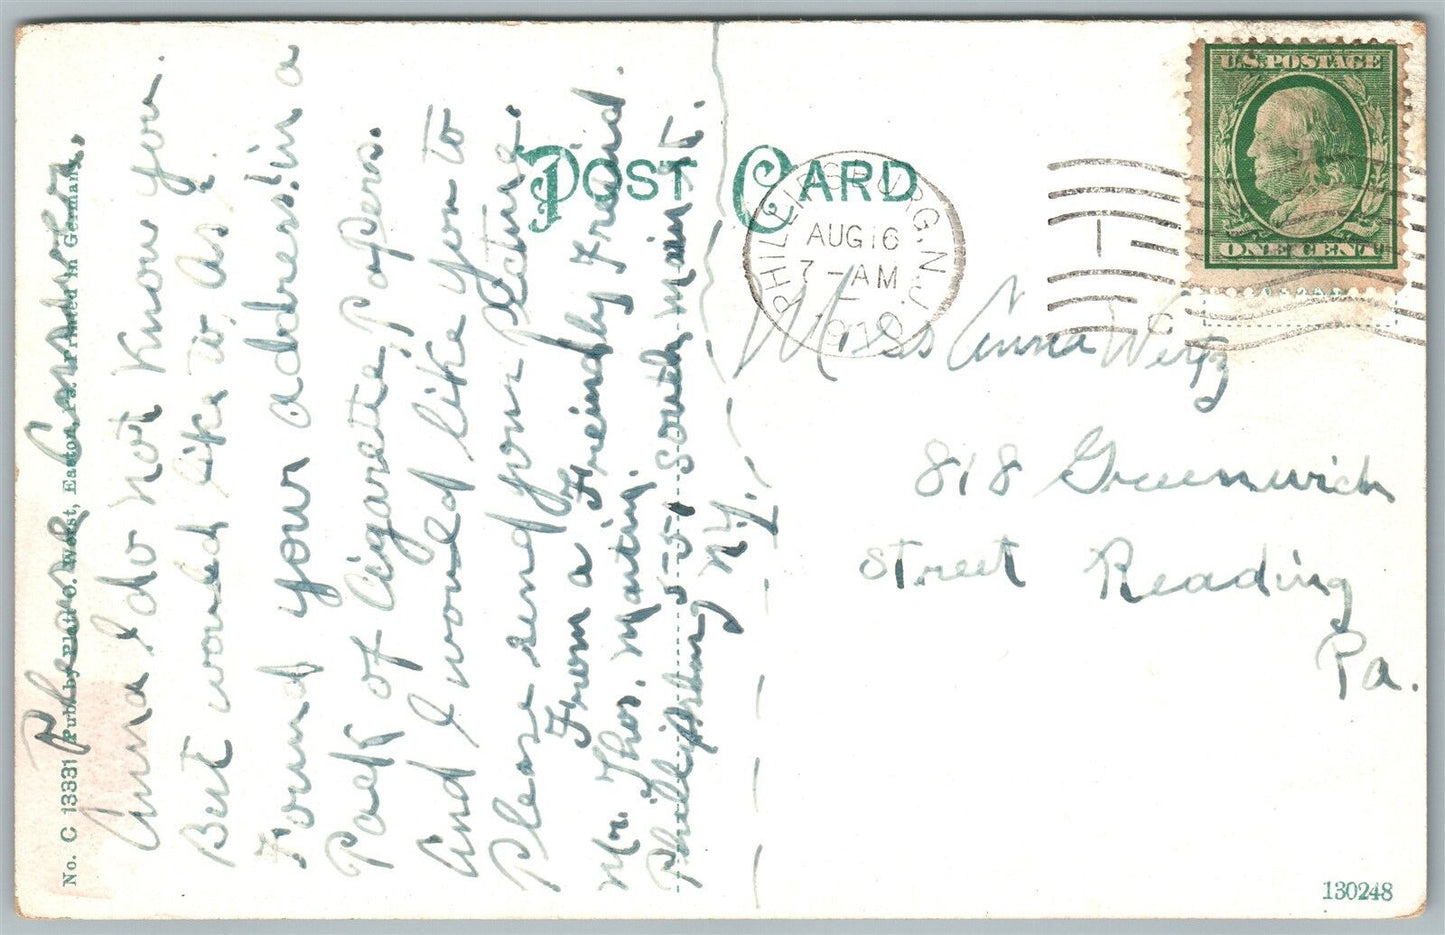 No. C 13331 Pub. by Platt C. Weist, Easton, Pa. Printed in Germany
Please Answer,
Anna I do not know you.
But would like to. As I
Found your address in a
Pack of Cigarette, Papers.
And I would like you to
Please send your Picture.
From a Freindly Freind
Mr. Thos. Martin,
Phillipsburg 551 South main St.
N.J.
POST CARD
PHILLIPSBURG, N.J.
AUG 16
7-AM
1910
U.S. POSTAGE
ONE CENT
Miss Anna Wertz
818 Greenwich
Street Reading
Pa.
130248